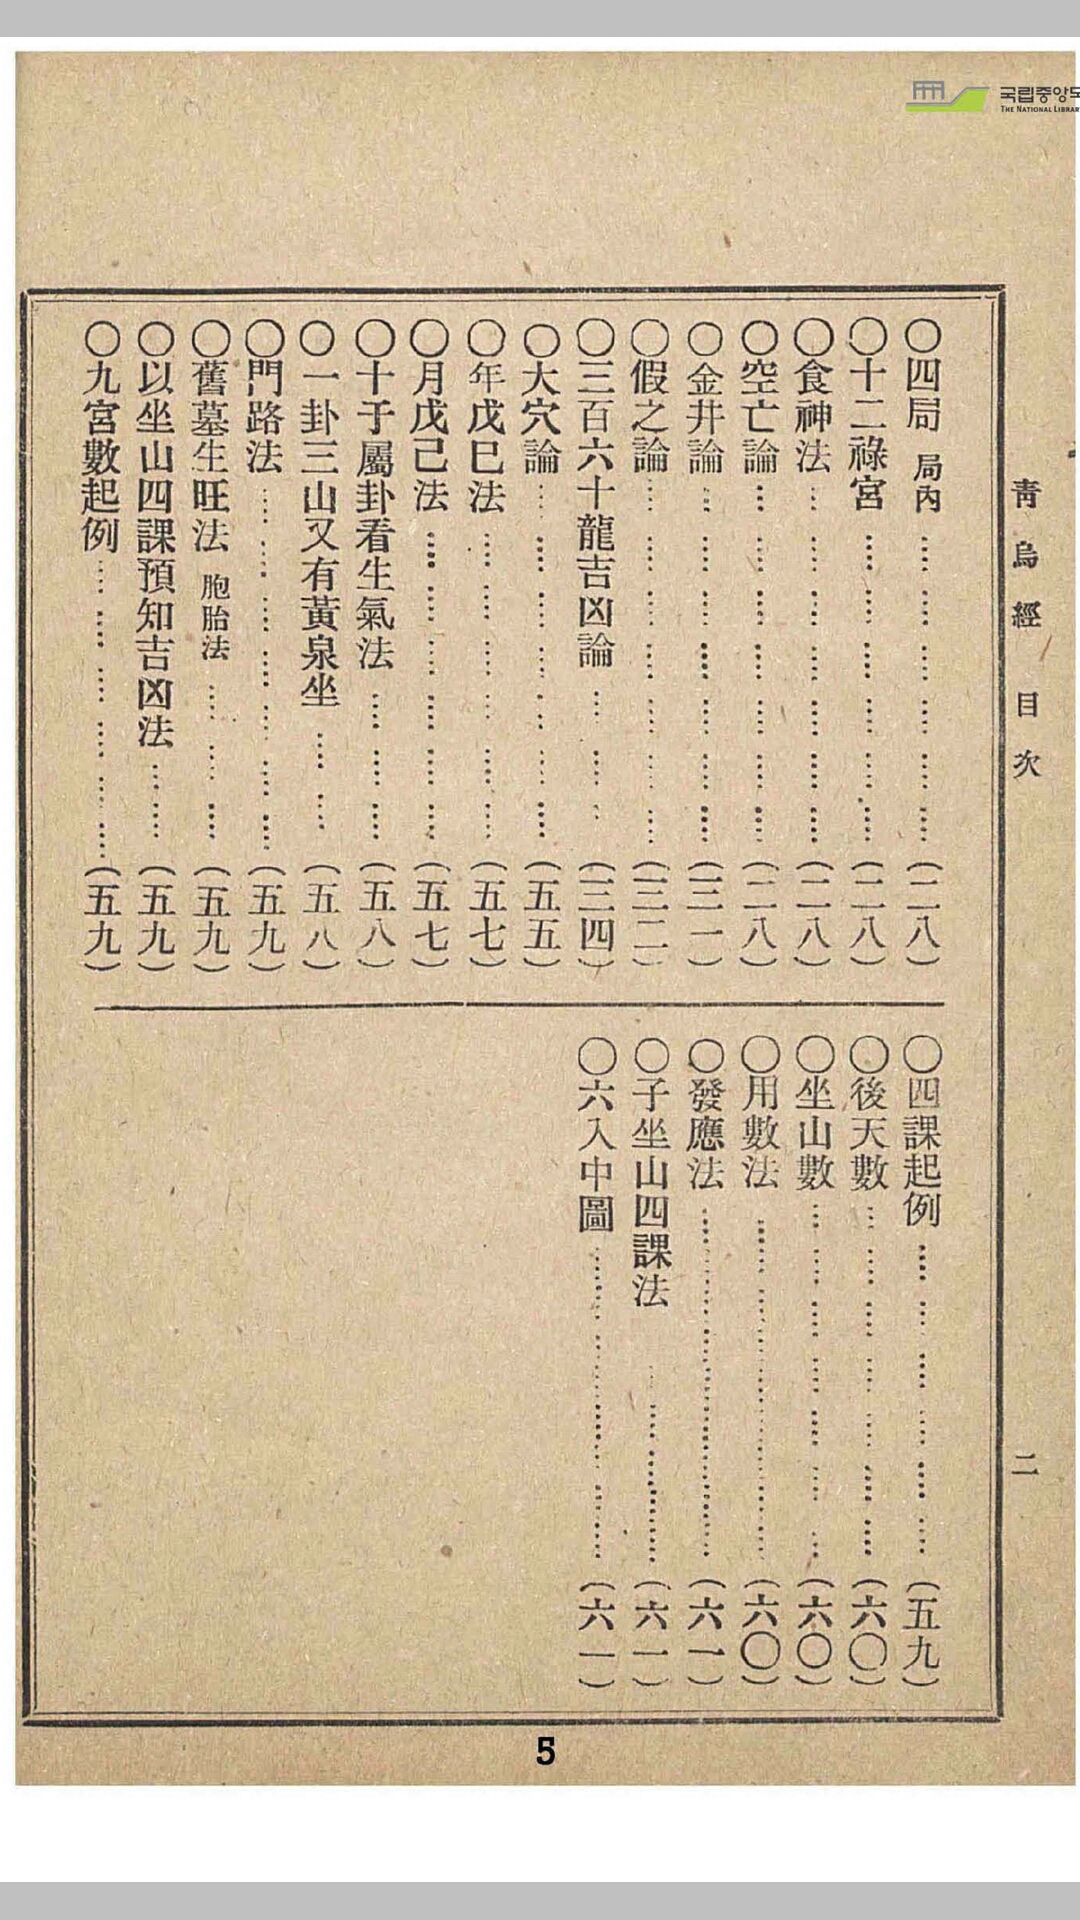 국립중앙도
THE NATIONAL LIBRAR
靑烏經 目次 二
〇四局 局內 (二八)
〇十二祿宮 (二八)
〇食神法 (二八)
〇空亡論 (二八)
〇金井論 (三一)
〇假之論 (三二)
〇三百六十龍吉凶論 (三四)
〇大穴論 (五五)
〇年戊巳法 (五七)
〇月戊己法 (五七)
〇十于屬卦看生氣法 (五八)
〇一卦三山又有黃泉坐 (五八)
〇門路法 (五九)
〇舊墓生旺法 胞胎法 (五九)
〇以坐山四課預知吉凶法 (五九)
〇九宮數起例 (五九)
〇四課起例 (五九)
〇後天數 (六〇)
〇坐山數 (六〇)
〇用數法 (六〇)
〇發應法 (六一)
〇子坐山四課法 (六一)
〇六入中圖 (六一)
5